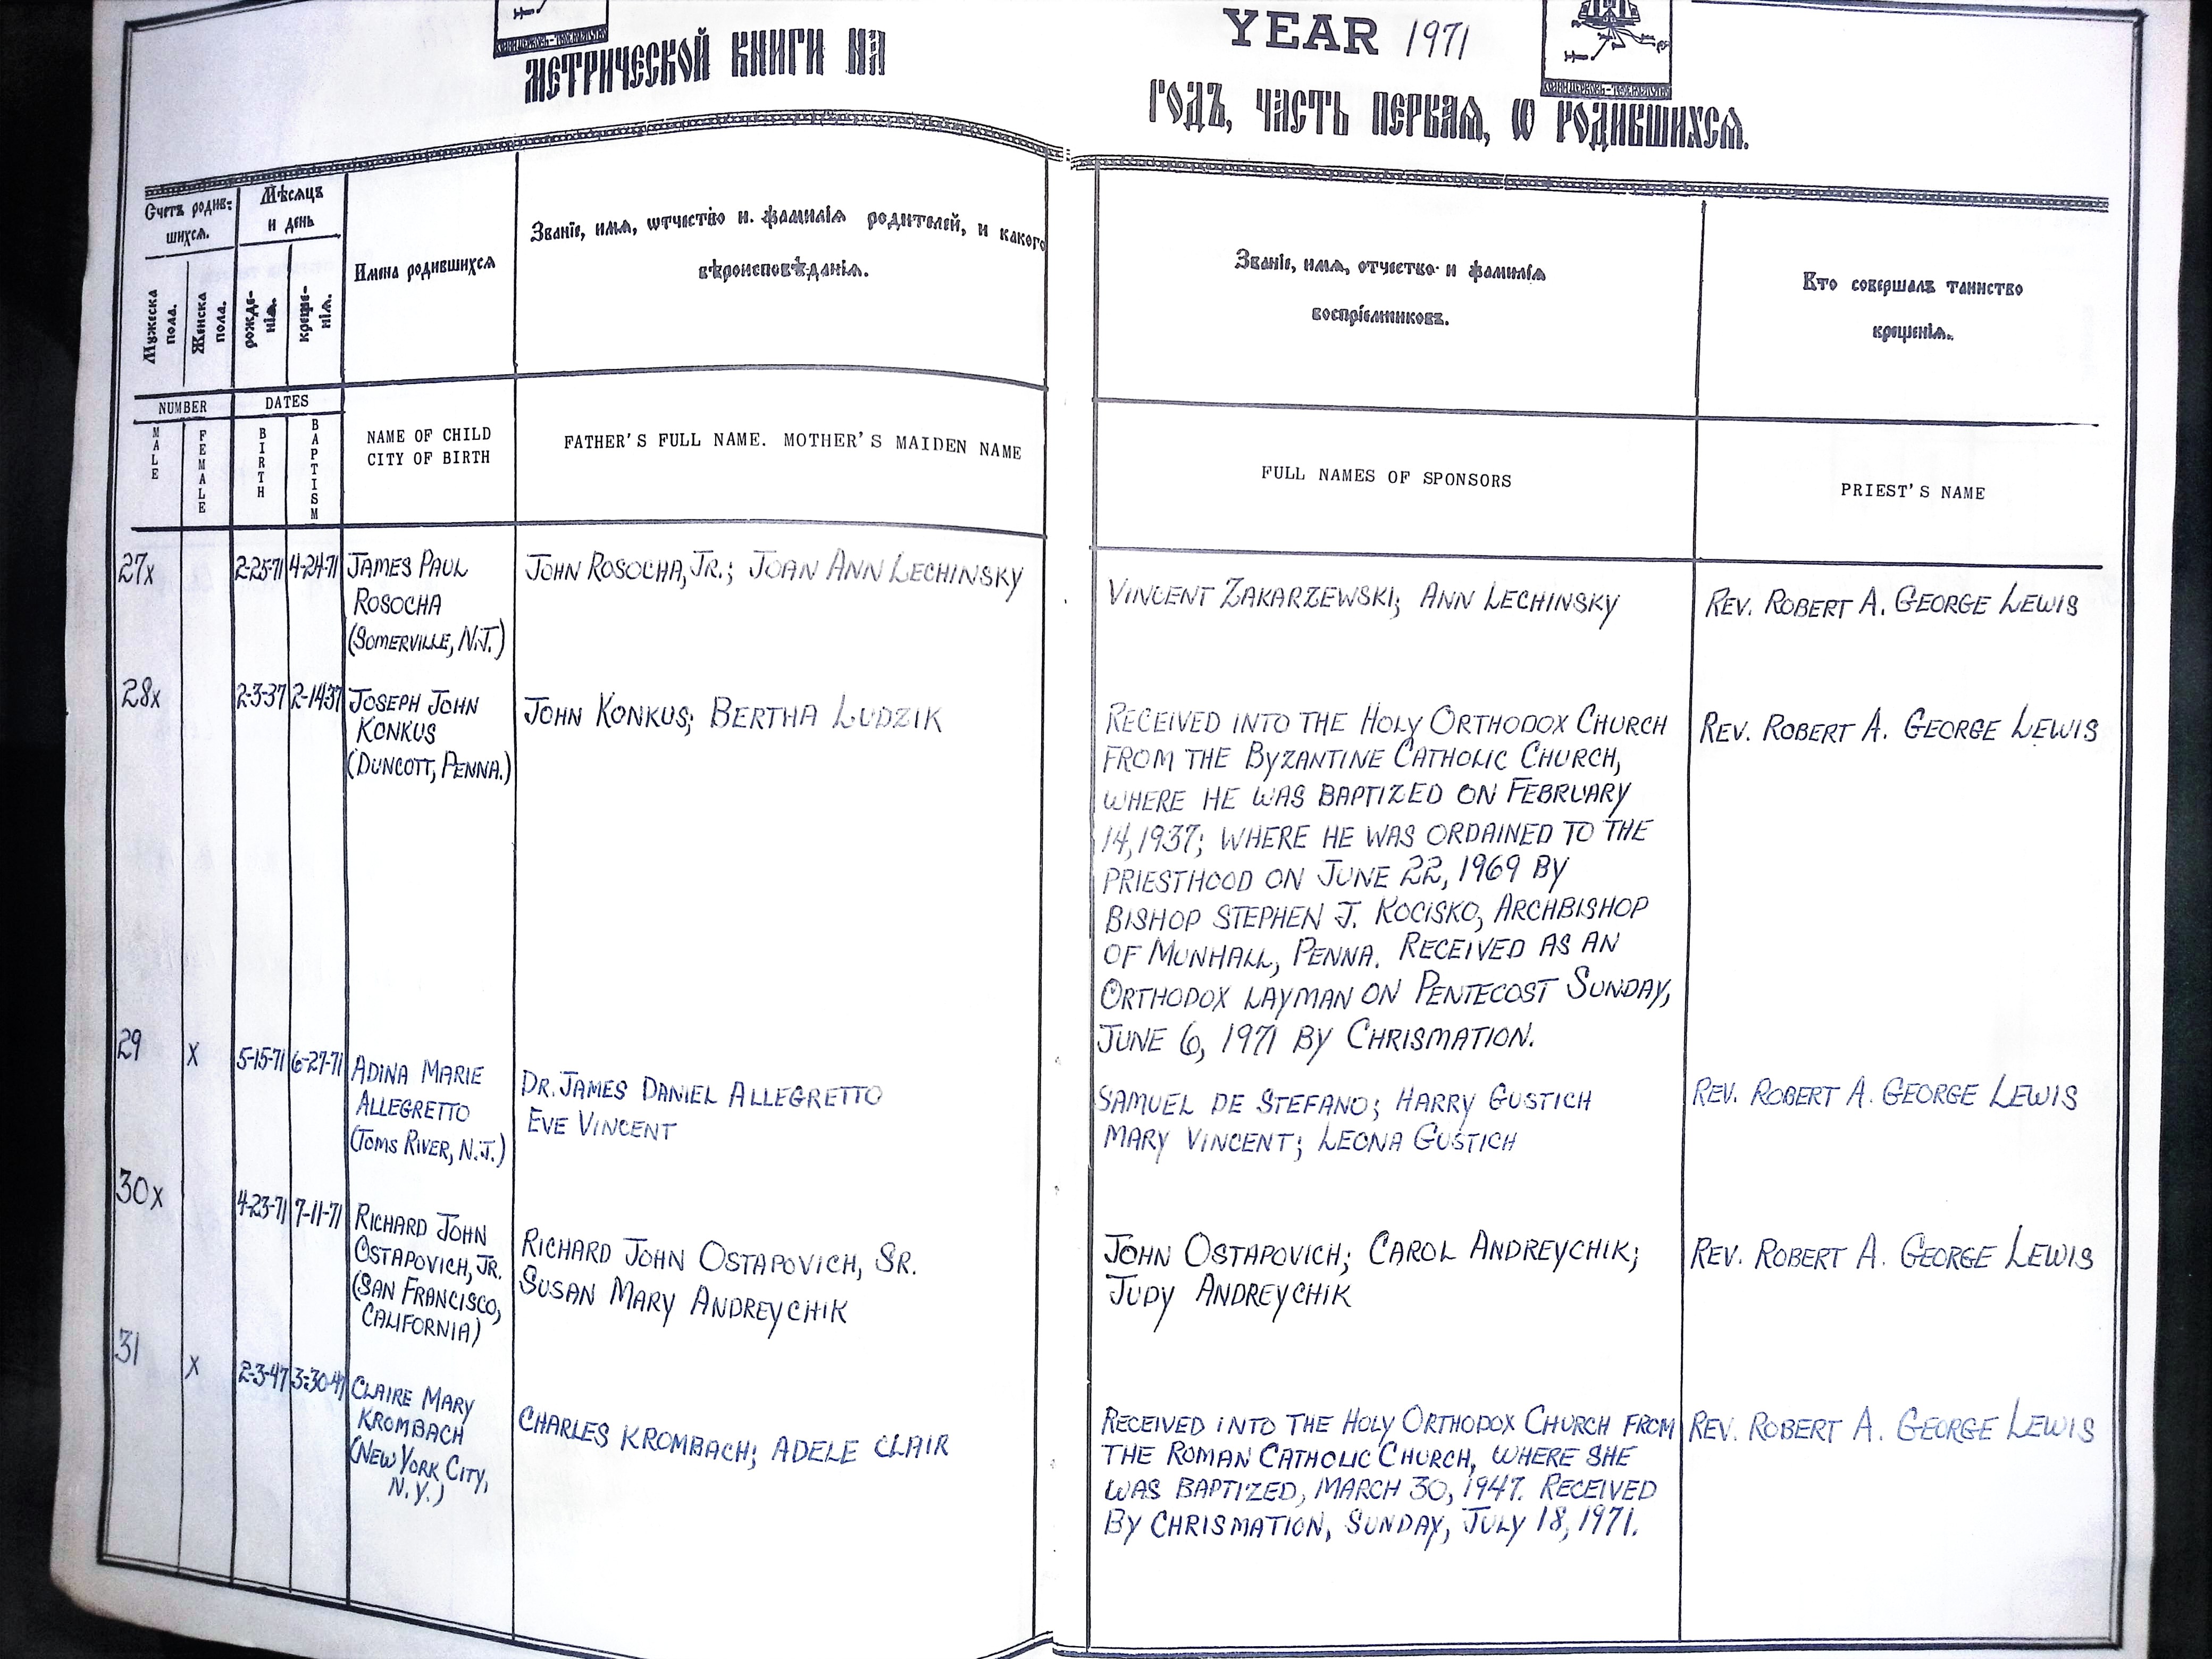 МЕТРИЧЕСКОЙ КНИГИ НА
YEAR 1971
ГОДЪ, ЧАСТЬ ПЕРВАѦ, Ѡ РОДИВШИХСѦ.
Счетъ родив-
шихсѧ.
Мѣсѧцъ
и день
Мужеска
пола.
Женска
пола.
рожде-
нїѧ.
креще-
нїѧ.
Имена родившихсѧ
Званїе, имѧ, ѡтчество и. фамилїѧ родителей, и какого
вѣроисповѣданїѧ.
Званїе, имѧ, отчество и фамилїѧ
воспрїемниковъ.
Кто совершалъ таинство
крещенїѧ.
NUMBER
DATES
MALE
FEMALE
BIRTH
BAPTISM
NAME OF CHILD
CITY OF BIRTH
FATHER'S FULL NAME. MOTHER'S MAIDEN NAME
FULL NAMES OF SPONSORS
PRIEST'S NAME
27x
2-25-71
4-24-71
JAMES PAUL
ROSOCHA
(SOMERVILLE, N.J.)
JOHN ROSOCHA, JR.; JOAN ANN LECHINSKY
VINCENT ZAKARZEWSKI; ANN LECHINSKY
REV. ROBERT A. GEORGE LEWIS
28x
2-3-37
2-14-37
JOSEPH JOHN
KONKUS
(DUNCOTT, PENNA.)
JOHN KONKUS; BERTHA LUDZIK
RECEIVED INTO THE HOLY ORTHODOX CHURCH
FROM THE BYZANTINE CATHOLIC CHURCH,
WHERE HE WAS BAPTIZED ON FEBRUARY
14, 1937; WHERE HE WAS ORDAINED TO THE
PRIESTHOOD ON JUNE 22, 1969 BY
BISHOP STEPHEN J. KOCISKO, ARCHBISHOP
OF MUNHALL, PENNA. RECEIVED AS AN
ORTHODOX LAYMAN ON PENTECOST SUNDAY,
JUNE 6, 1971 BY CHRISMATION.
REV. ROBERT A. GEORGE LEWIS
29
X
5-15-71
6-27-71
ADINA MARIE
ALLEGRETTO
(TOMS RIVER, N.J.)
DR. JAMES DANIEL ALLEGRETTO
EVE VINCENT
SAMUEL DE STEFANO; HARRY GUSTICH
MARY VINCENT; LEONA GUSTICH
REV. ROBERT A. GEORGE LEWIS
30x
4-23-71
7-11-71
RICHARD JOHN
OSTAPOVICH, JR.
(SAN FRANCISCO,
CALIFORNIA)
RICHARD JOHN OSTAPOVICH, SR.
SUSAN MARY ANDREYCHIK
JOHN OSTAPOVICH; CAROL ANDREYCHIK;
JUDY ANDREYCHIK
REV. ROBERT A. GEORGE LEWIS
31
X
2-3-47
3-30-47
CLAIRE MARY
KROMBACH
(NEW YORK CITY,
N.Y.)
CHARLES KROMBACH; ADELE CLAIR
RECEIVED INTO THE HOLY ORTHODOX CHURCH FROM
THE ROMAN CATHOLIC CHURCH, WHERE SHE
WAS BAPTIZED, MARCH 30, 1947. RECEIVED
BY CHRISMATION, SUNDAY, JULY 18, 1971.
REV. ROBERT A. GEORGE LEWIS